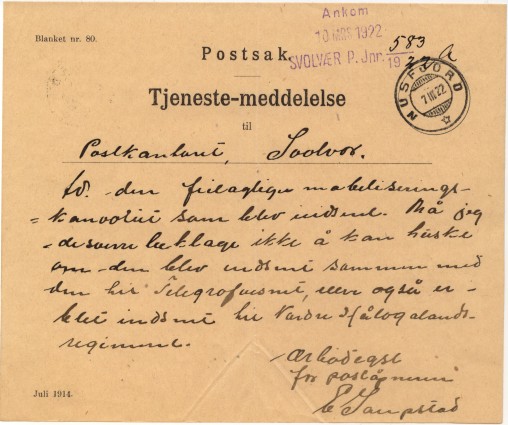 Blanket nr. 80.
Ankom
10 MRS 1922
SVOLVÆR P. Jnr. 583/1922 A
Postsak.
NUSFJORD
7 III 22
Tjeneste-meddelelse
til
Postkontoret, Svolvær.
den mobiliserings-
som blev indsent. Må jeg
desverre beklage ikke å kan huske
om den blev indsent sammen med
den til Telegrafvesnet, eller også er
blet indsent til Nordre Hålogalands-
regiment.
Ærbødigst
for poståpneri
E
Juli 1914.